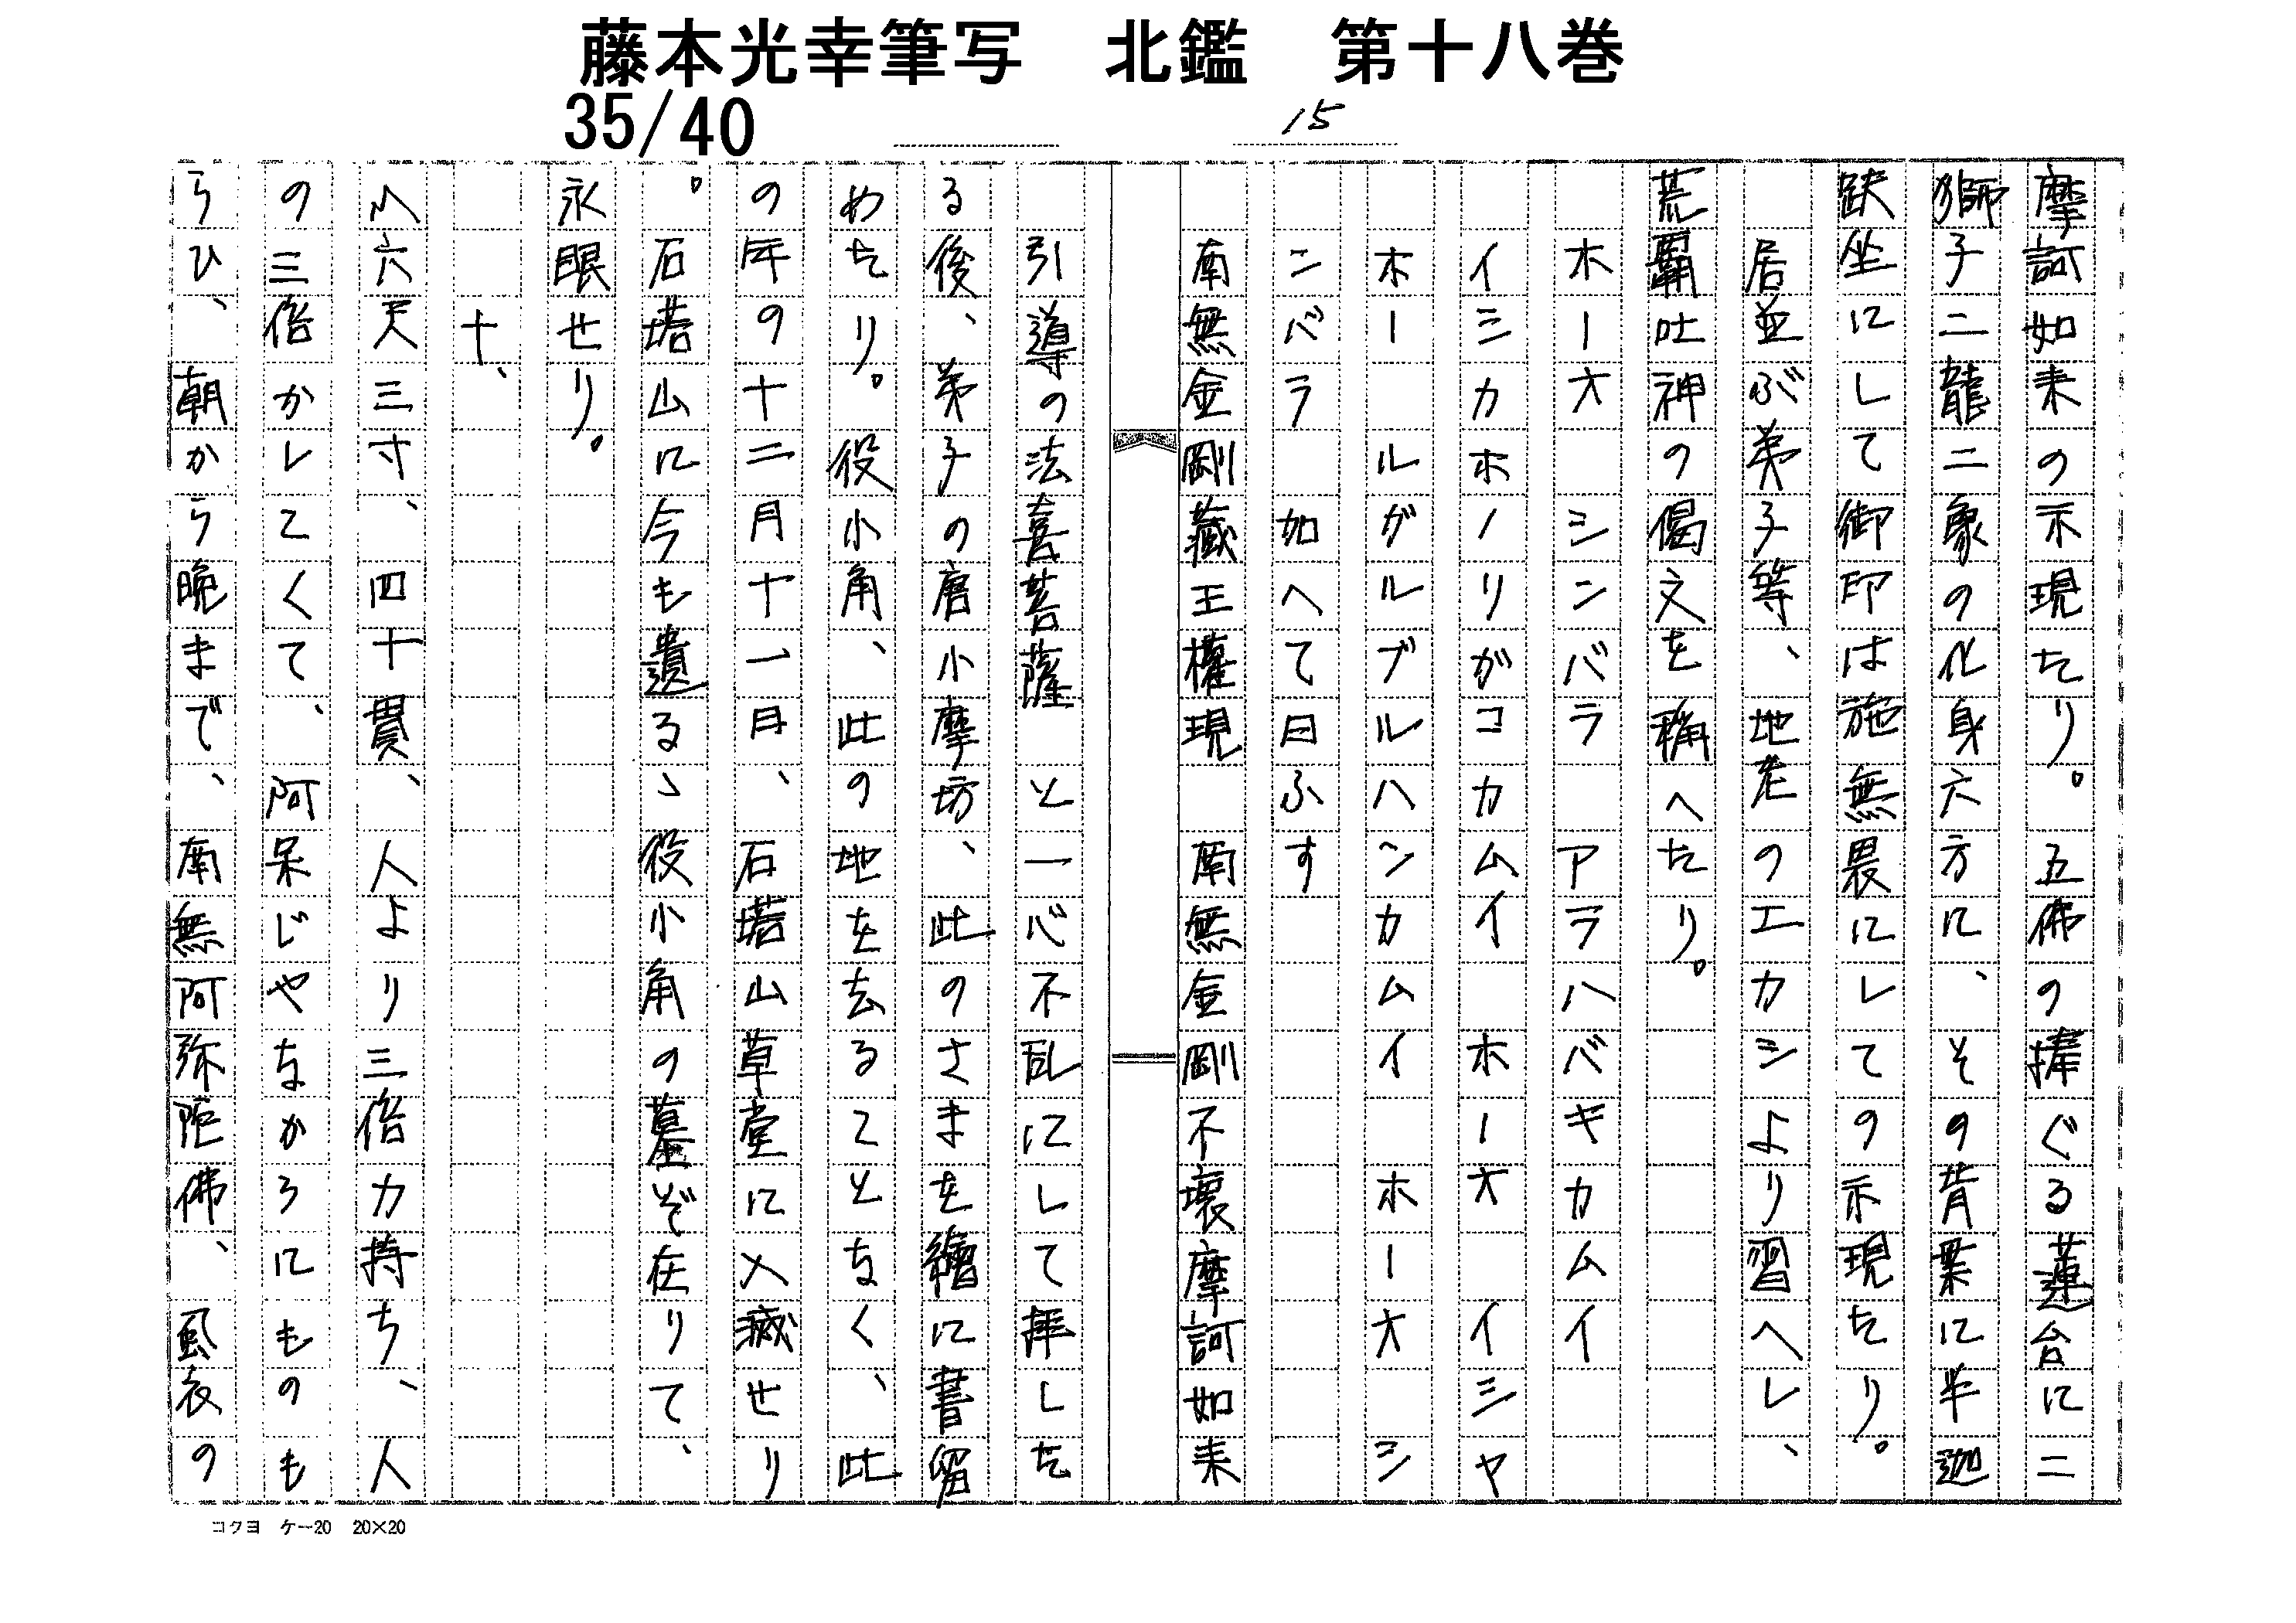 藤本光幸筆写　北鑑　第十八巻
35/40
15
摩訶如来の示現たり。五佛の捧ぐる蓮台に二
獅子二龍二象の化身六方に、その背業に半迦
趺坐にして御印は施無畏にしての示現たり。
居並ぶ弟子等、地老のエカシより習へし、
荒覇吐神の偈文を稱へたり。
ホーオ　シンバラ　アラハバキカムイ
イシカホノリガコカムイ　ホーオ　イシヤ
ホー　ルガルブルハンカムイ　ホーオ　シ
ンバラ　如へて曰ふす
南無金剛蔵王權現　南無金剛不壊摩訶如来
引導の法喜菩薩　と一心不乱にして拝した
る後、弟子の唐小摩坊、此のさまを繪に書留
めたり。役小角、此の地を去ることなく、此
の年の十二月十一日、石塔山草堂に入滅せり
。石塔山に今も遺る、役小角の墓ぞ在りて、
永眠せり。
十、
八六天三寸、四十貫、人より三倍力持ち、人
の三倍かしこくて、阿呆じやなかろにものも
らひ、朝から晩まで、南無阿弥陀佛、風衣の
コクヨ　ケー20　20×20